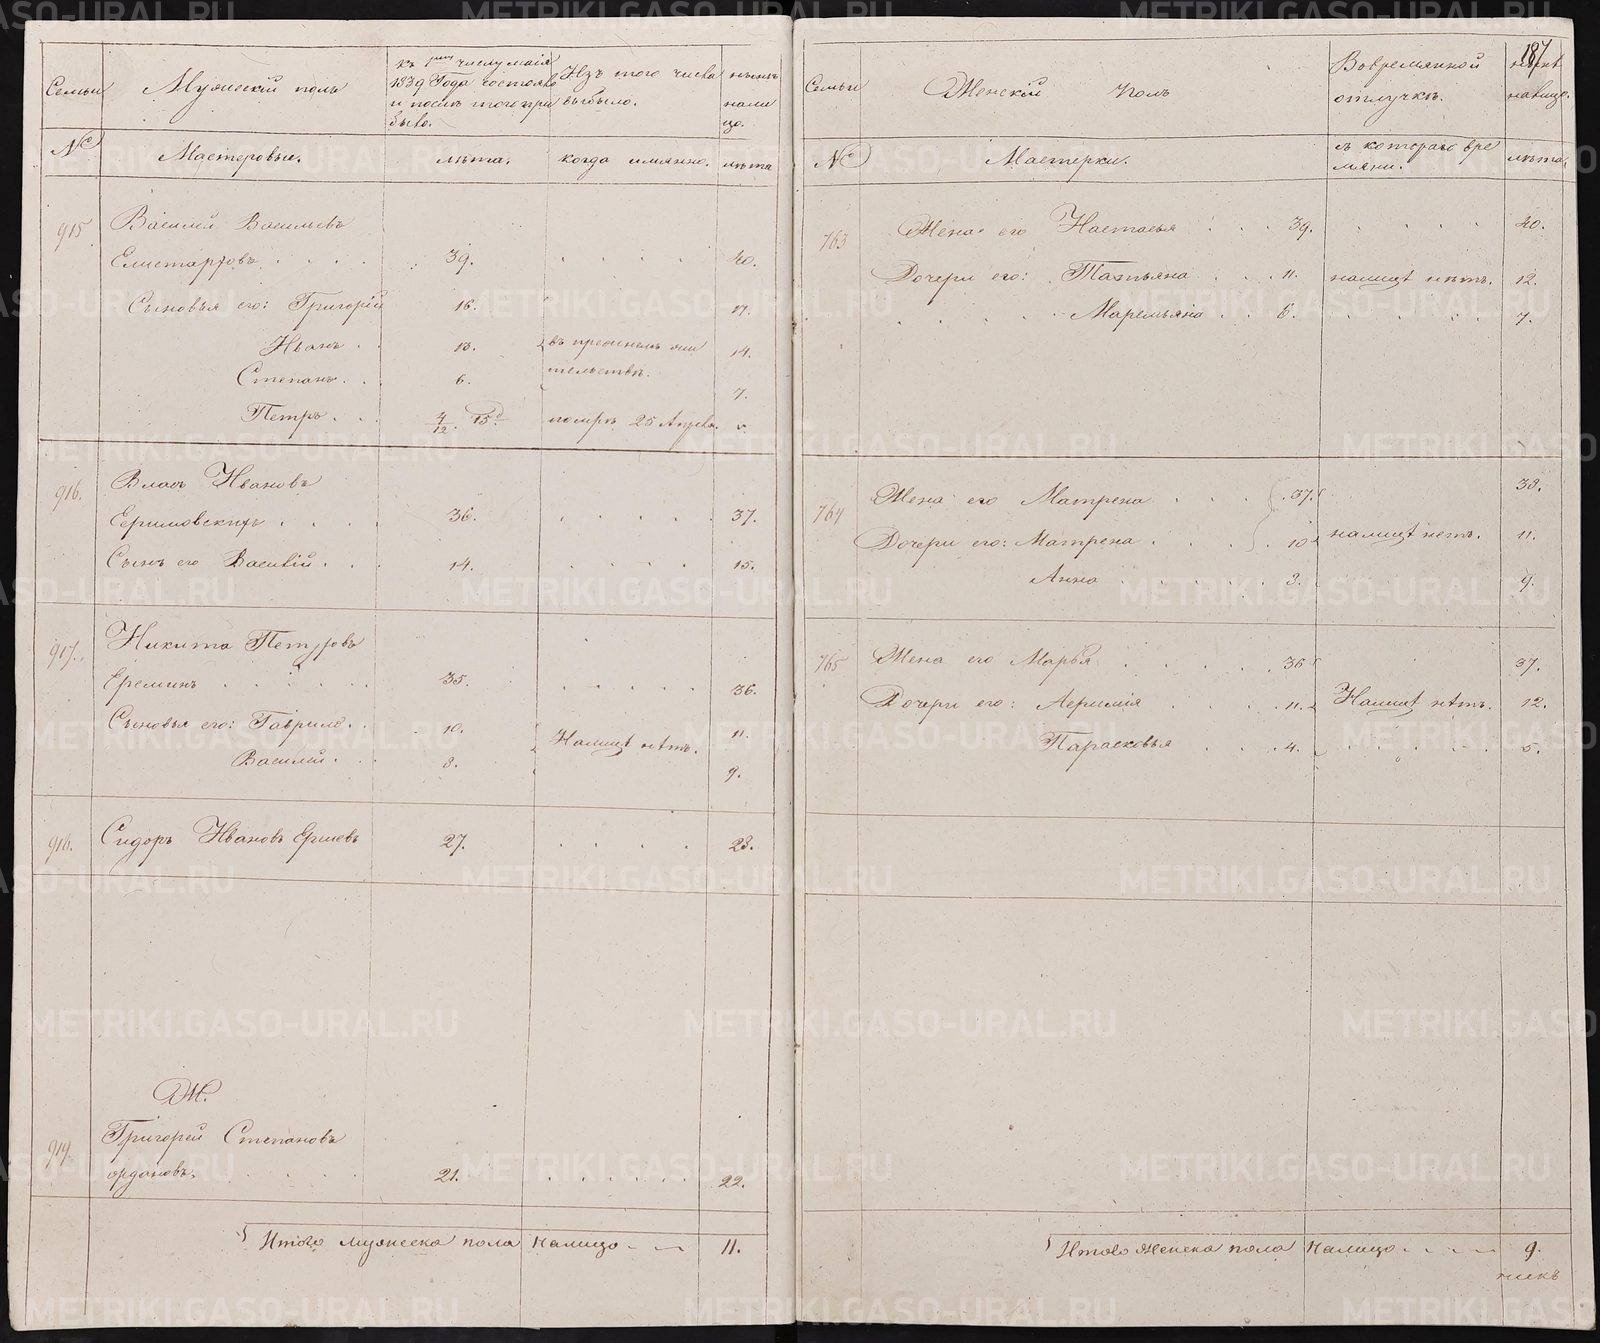 Семьи
Мужескій полъ
къ 1му числу маія
1839 Года состояло
и послѣ того при
было.
Изъ того числа
выбыло.
нынѣ
нали
цо.
№
Мастеровыи.
лѣта.
когда имянно.
лѣта
915
Василий Васильевъ
Елистарховъ . . . . 39. . . . . . 40.
Сыновья его: Григорій 16. 17.
Иванъ . . 13. 14.
въ прежнемъ жи
тельствѣ.
Степанъ . . 6. 7.
Петръ . . 4/12. 15д. помръ 25 Апреля. "
916.
Власъ Ивановъ
36. . . . . . 37.
Сынъ его Василій . . . 14. . . . . 15.
917.
Никита Петровъ
Ереминъ . . . . . . 35. . . . . . 36.
Сыновья его: Гаврило . . 10. 11.
Налицѣ нѣтъ.
Василий . . 8. 9.
918.
Сидоръ Ивановъ Ершевъ 27. . . . . 28.
Ж.
919.
Григорей Степановъ
ордановъ. . . . . 21. . . . . . 22.
Итого мужеска пола налицо 11.
187
Семьи
Женскій полъ
Вовремянной
отлучкѣ.
нынѣ
налицо.
№
Мастерки.
съ котораго вре
мяни.
лѣта.
763
Жена его Настасья . . . 39. . . . . 40.
Дочери его: Татьяна . . . 11. налицѣ нѣтъ. 12.
Маремьяна . . 6. . . . . . 7.
764
Жена его Матрена . . . . 37. 38.
Дочери его: Матрена . . . 10 налицѣ нетъ. 11.
Анна . . . . . 8. 9.
765
Жена его Марья . . . . 36 37.
Дочери его: . . . . 11. Налицѣ нѣтъ. 12.
Парасковья . . . 4. . . . . . 5.
Итого женска пола налицо . . . . 9.
METRIKI.GASO-URAL.RU